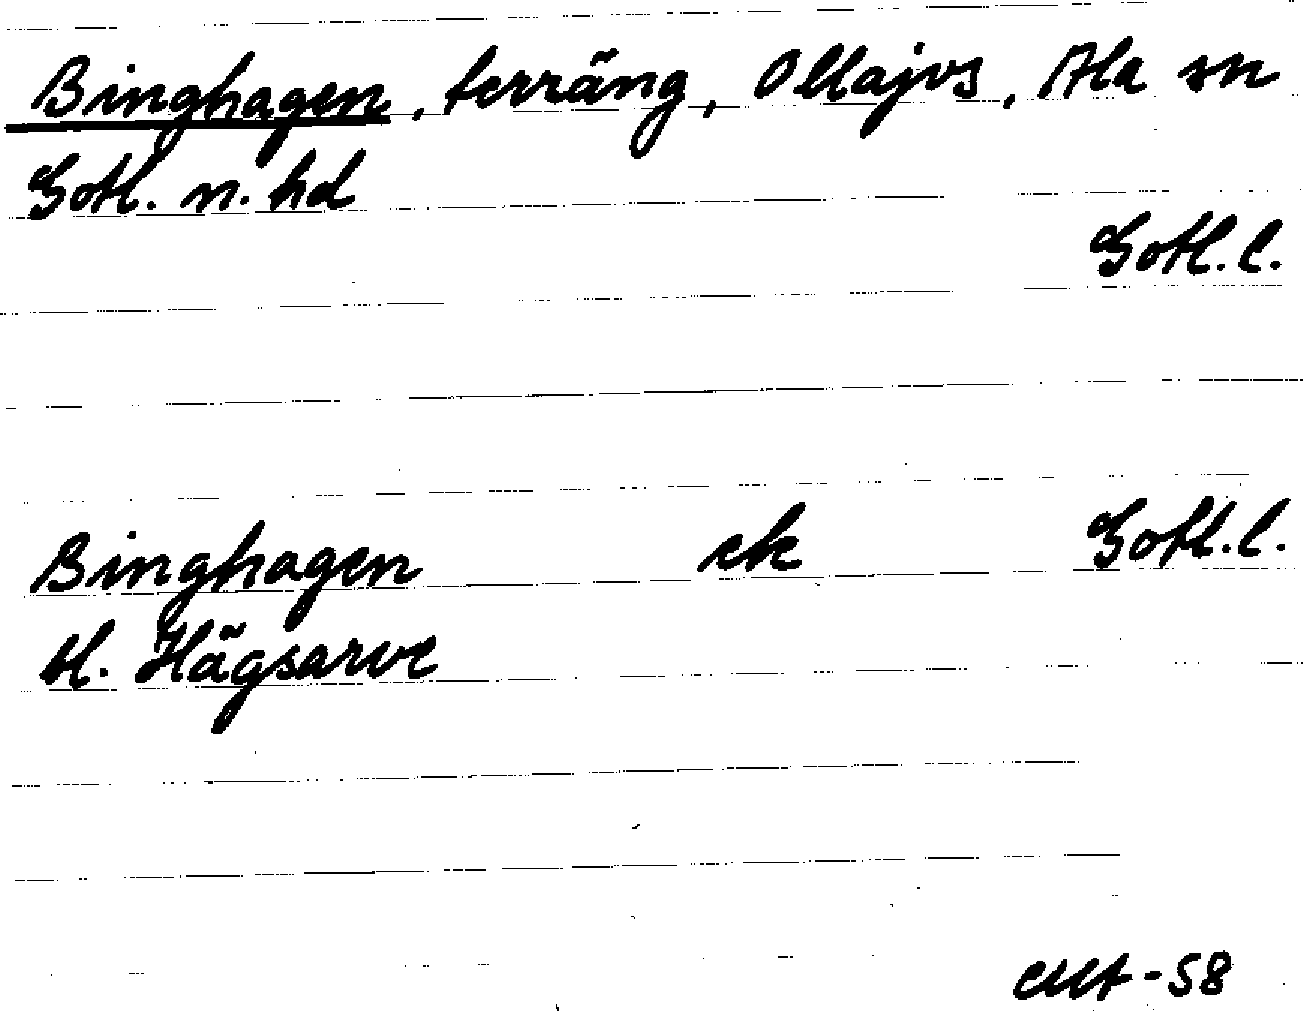 Binghagen, terräng, Ollajvs, Ala sn
Gotl. n. hd
Gotl. l.
Binghagen ek Gotl. l.
tl. Hägsarve
-58